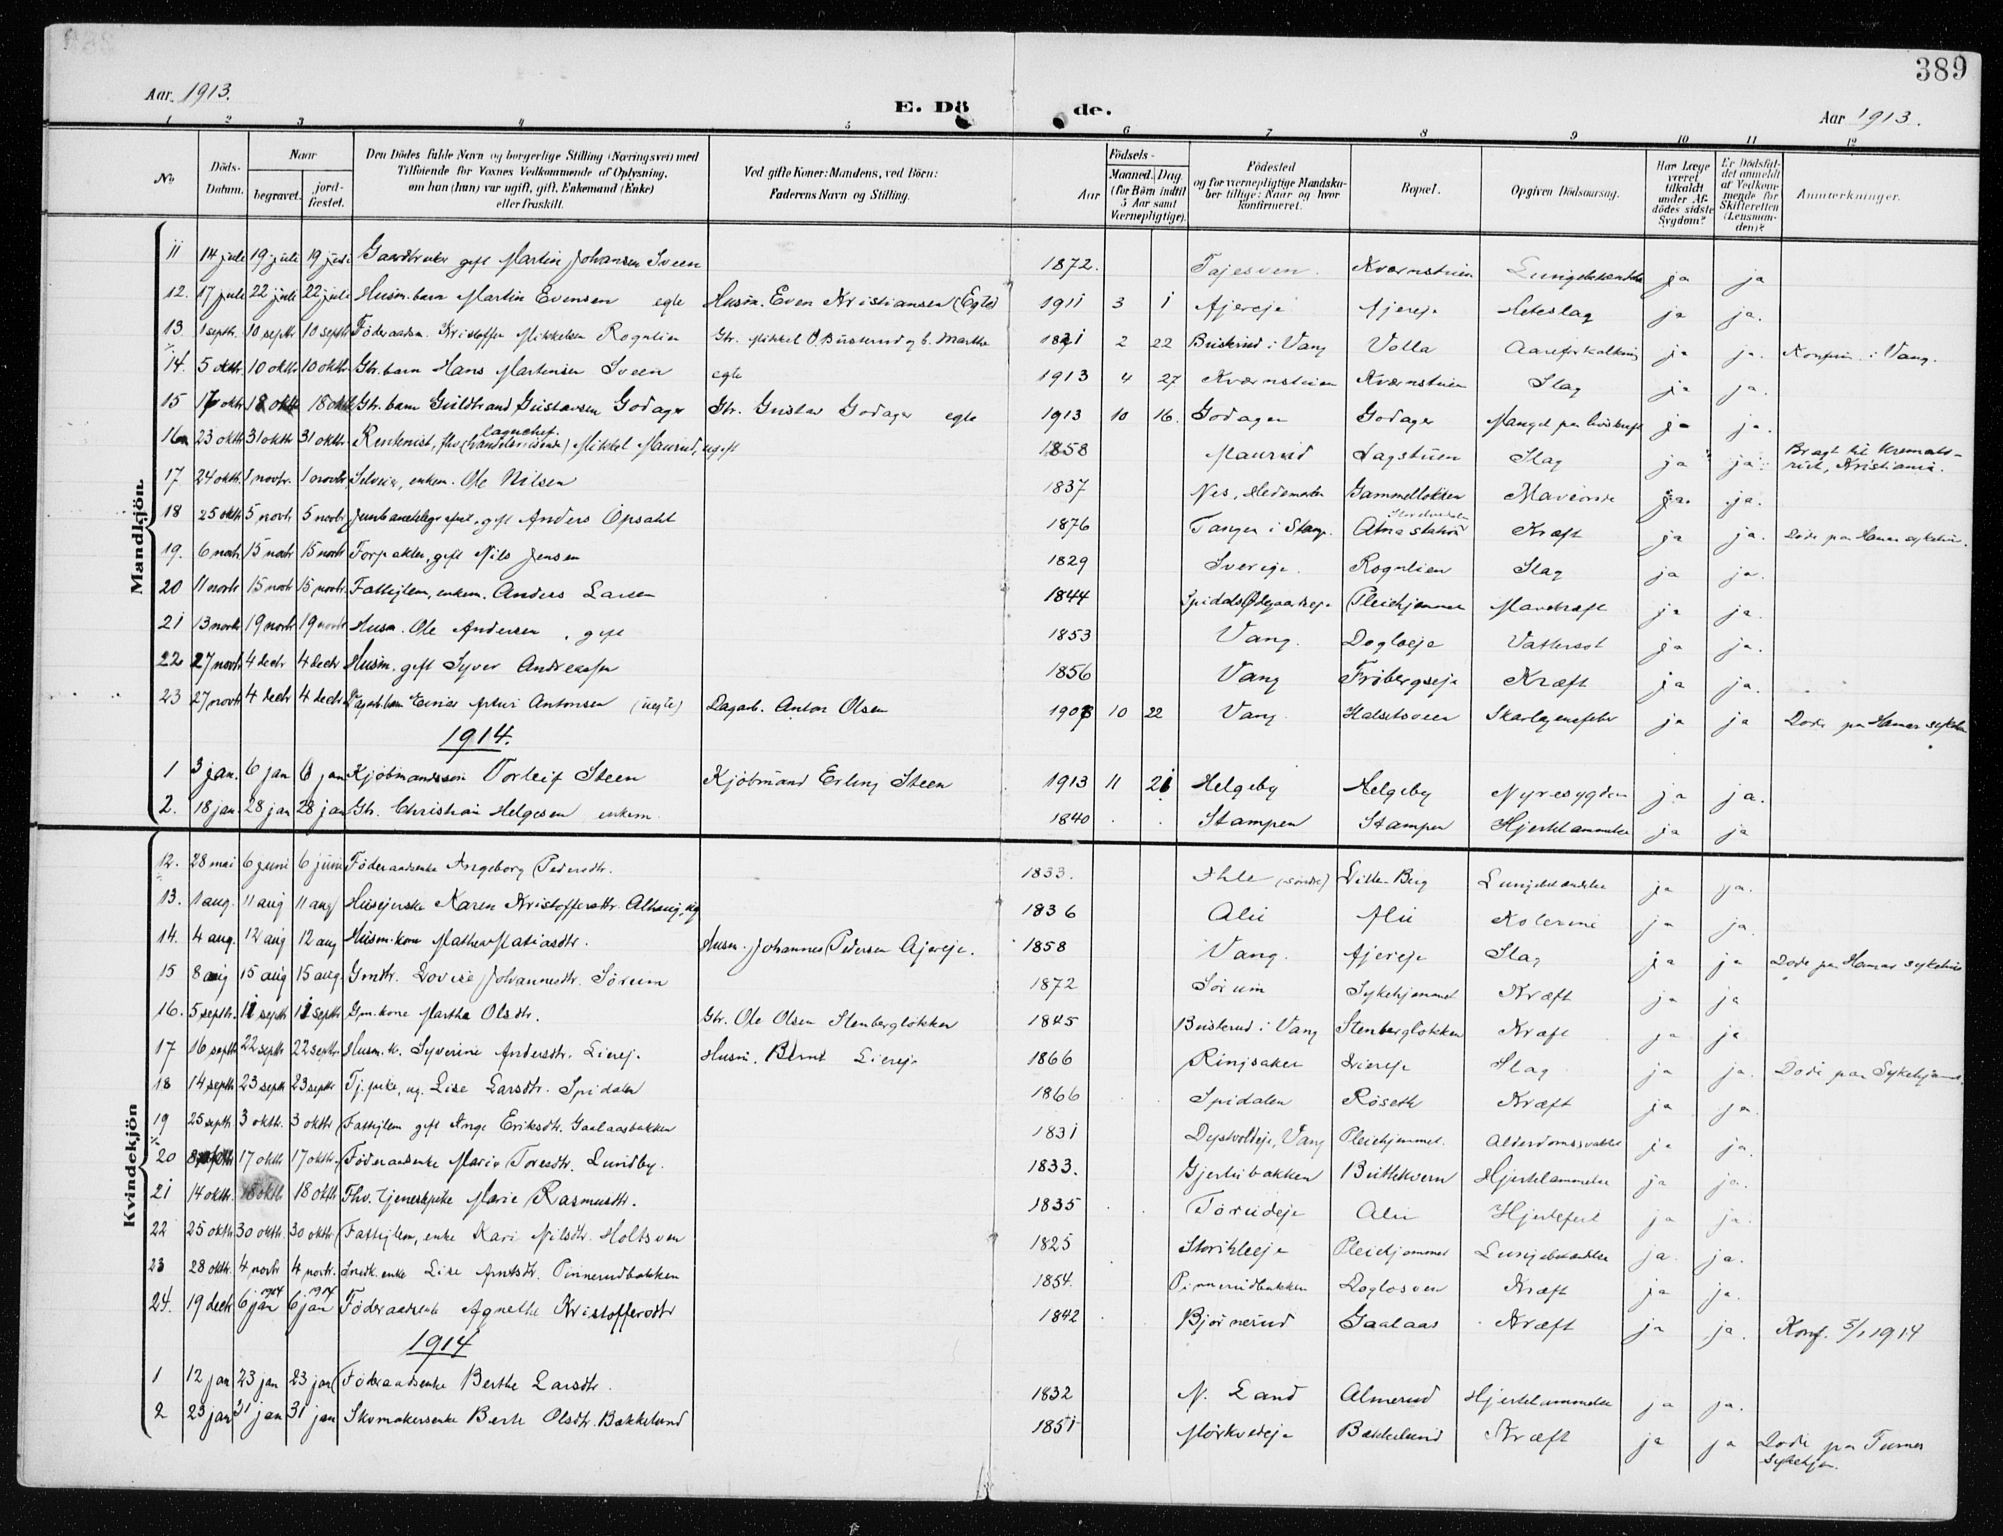 389
Aar 1913.
E. Döde.
Aar 1913.
1 2 3 4 5 6 7 8 9 10 11 12
No
Döds-Datum.
Naar
begravet. jordfæstet.
Den Dödes fulde Navn og borgerlige Stilling (Næringsvei) med Tilföiende för Voxnes Vedkommende af Oplysning, om han (hun) var ugift, gift, Enkemand (Enke) eller fraskilt.
Ved gifte Koner: Mandens, ved Börn: Faderens Navn og Stilling.
Födsels-
Aar Maaned. Dag. (for Börn indtil 5 Aar samt Værnepligtige).
Födested og for værnepligtige Mandskaber tillige: Naar og hvor konfirmeret.
Bopæl.
Opgiven Dödsaarsag.
Har Læge været tilkaldt under Afdödes sidste Sygdom?
Er Dödsfaldet anmeldt af Vedkommende for Skifteretten (Lensmanden)?
Anmærkninger.
Mandkjön.
11 14 juli 19 juli 19 juli Gaardbruker gift Martin Johansen Sveen 1872. Kværnstuen ja ja
12. 17 juli 22 juli 22 juli Husm. barn Martin Evensen egte Husm. Even Kristiansen (Egte) 1911 3 1 Ajereje Ajereje ja ja.
13 1 septr. 10 septr 10 septr Föderaadsm. Kristoffer Mikkelsen Rognlien Gbr. Mikkel O. Buserud og h. Marthe 1821 2 22 Buserud i Vang Volla Aareforkalkning ja ja. Konfirm. i Vang.
14. 5 oktr 10 oktr 10 oktr Gbr. barn Hans Martensen Sveen egte 1913 4 27 Kværnstuen Kværnstuen Slag ja ja.
15 17 oktr 18 oktr 18 oktr Gbr. barn Guldbrand Gustavsen Godager Gbr. Gustav Godager egte 1913 10 16. Godager Godager Mangel paa livskraft ja ja.
16a 23 oktr 31 oktr 31 oktr Rentenist, fhv. lagerchef (handelsreisende) Mikkel Maurud, ugift 1858 Maurud Lagstuen Slag ja ja. Bragt til Krematoriet, Kristiania.
17 24 oktr. 1 novbr. 1 novbr Selveier, enkem. Ole Nilsen 1837 Nes, Hedemarken Gammelløkken ja. ja.
18 25 oktr 5 novbr 5 novbr Jernbanetelegrafist, gift Anders Opsahl 1876 Tangen i Stange. Atna station Kræft ja ja. Døde paa Hamar sykehus.
19. 6 novbr 15 novbr 15 novbr Forpakter, gift Nils Jensen 1829 Sverige. Rognlien Slag ja ja.
20 11 novbr 15 novbr 15 novbr Fattiglem, enkem. Anders Larsen 1844 Pleiehjemmet Mavekræft ja ja.
21 13 novbr 19 novbr 19 novbr Husm. Ole Andersen, gift 1853 Vang. Dogloeje Vattersot ja ja.
22 27 novbr 4 decbr 4 decbr Husm. gift Syver Andreassen 1856 Vang Fribergseje Kræft ja ja.
23 27 novbr 4 decbr 4 decbr Dagarb. barn Einar Artur Antonsen (uegte) Dagarb. Anton Olsen 1908 10 22 Vang. Halsetsveen Skarlagensfeber ja ja Døde paa Hamar sykehus
1914.
1 3 jan. 6 jan 6 jan Kjøbmandssøn Torleif Steen Kjøbmand Erling Steen 1913 11 21 Helgeby Helgeby Nyresygdom ja ja.
2. 18 jan. 28 jan 28 jan Gbr. Christian Helgesen enkem. 1840 Stampen Stampen Hjertelammelse ja ja
Kvindekjön
12. 28 mai 6 juni 6 juni Föderaadsenke Ingeborg Pedersdtr. 1833. Ihle (søndre) Litle Berg Lungebetændelse ja ja.
13. 1 aug. 11 aug 11 aug Huseierske Karen Kristoffersdtr. 1836 Alu Alu Kolerine ja ja.
14. 4 aug. 12 aug 12 aug Husm.kone Mathea Matiasdtr. Husm. Johannes Pedersen Ajereje. 1858 Vang. Ajereje Slag ja ja Døde paa Hamar sykehus
15 8 aug 15 aug 15 aug. Gmdtr. Lovise Johannesdtr. Sørum 1872 Sørum Sykehjemmet Kræft ja ja
16. 5 septr. 11 septr 11 septr Gm.kone Martha Olsdtr. Gbr. Ole Olsen Stenbergløkken 1845 Buserud i Vang Stenbergløkken Kræft ja ja
17 16 septr 22 septr 22 septr. Husm.k. Syverine Andersdtr. Liereje. Husm. Bernt Liereje 1866 Ringsaker Liereje Slag ja ja. Døde paa Sykehjemmet.
18 14 septr 23 septr 23 septr Tj.pike, ug. Lise Larsdtr. Spidalen 1866 Spidalen Røseth Kræft ja ja.
19 25 septr 3 oktr. 3 oktr Fattiglem gift Inge Eriksdtr. Gaalaasbakken 1831 Vang Pleiehjemmet. Alderdomssvakhet ja ja.
20 17 oktr 17 oktr. Föderaadsenke Marie Toresdtr. Lundby. 1833. Gjerlubakken Buttekvern Hjertelammelse ja ja.
21 14 oktr. 18 oktr 18 oktr Fhv. tjenestepike Marie Rasmusdtr. 1835 Torudeje Alu Hjertefeil ja ja.
22 25 oktr 30 oktr. 30 oktr. Fattiglem, enke Kari Nilsdtr. Holtsven 1825 Storihleeje Pleiehjemmet Lungebetændelse ja ja.
23 28 oktr. 4 novbr 4 novbr. Snedk. enke Lise Arntsdtr. Pinnerudbakken 1854. Pinnerudbakken Doglosven Kræft ja ja.
24. 19 decbr 6 jan 1914 6 jan 1914 Föderaadsenke Agnethe Kristoffersdtr 1842 Bjørnerud Gaalaas Kræft ja ja. Konf. 5/1 1914
1914
1 12 jan 23 jan 23 jan Föderaadsenke Berthe Larsdtr. 1832 N. Land Almerud Hjertelammelse ja ja.
2 23 jan 31 jan 31 jan Skomakersenke Berte Olsdtr. Bakkelund 1851 Mørkvedeje Bakkelund Kræft ja ja Døde paa Furnes sykehjem.